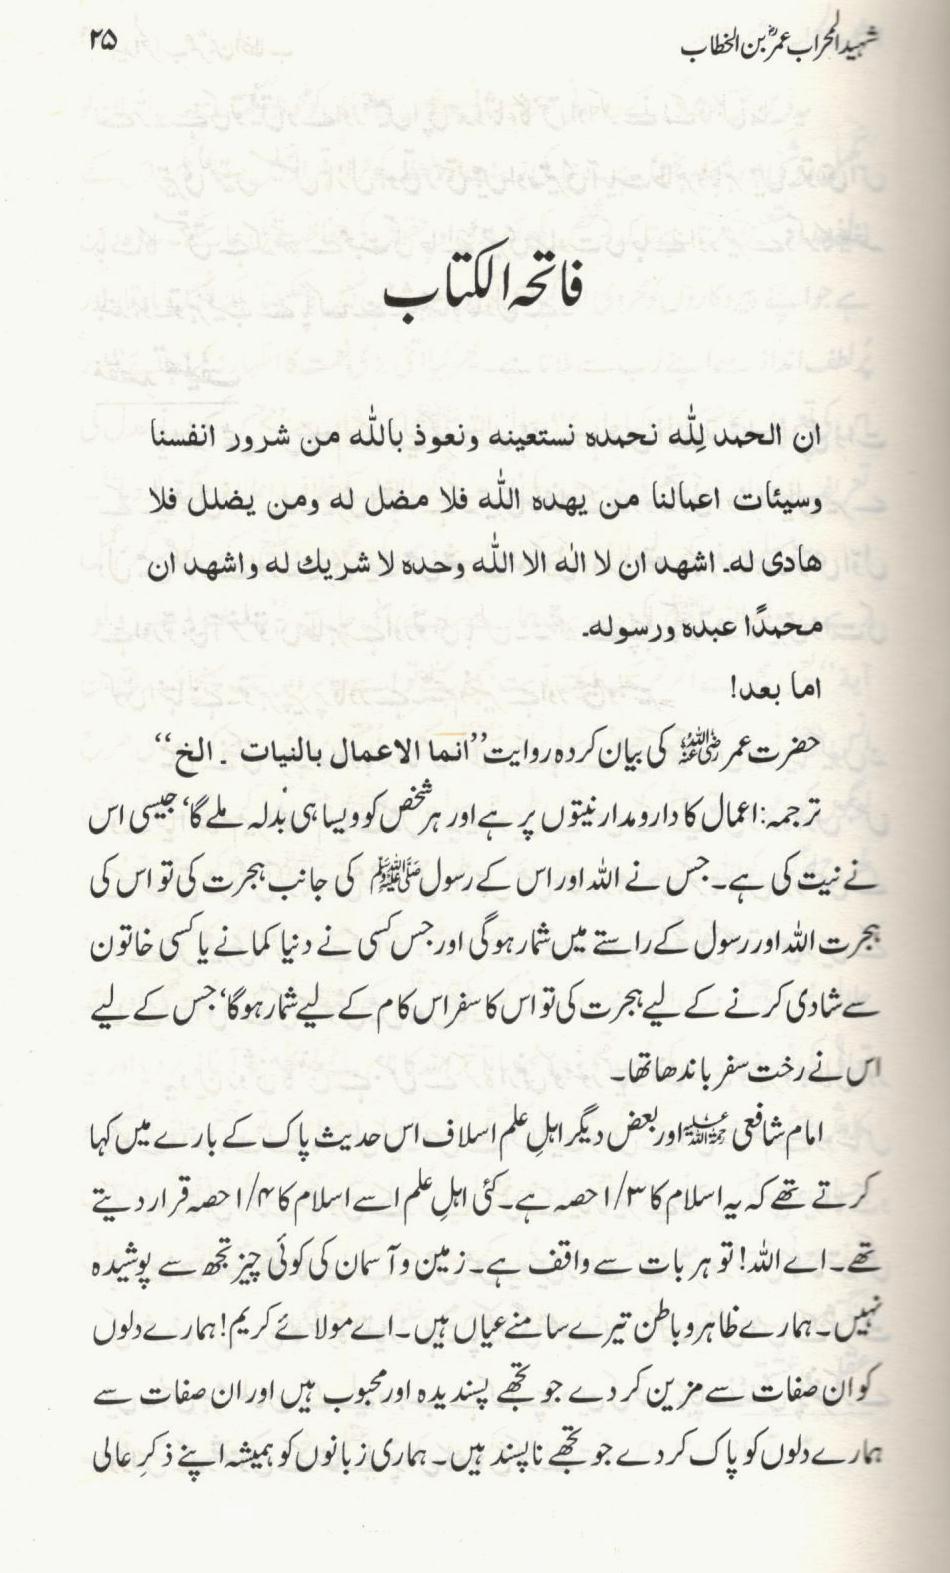 شہید المحراب عمرؓ بن الخطاب ۲۵
فاتحہ الکتاب
ان الحمد لِلّٰه نحمده نستعينه ونعوذ باللّٰه من شرور انفسنا
وسيئات اعمالنا من يهده اللّٰه فلا مضل له ومن يضلل فلا
هادی له۔ اشهد ان لا الٰه الا اللّٰه وحده لا شريك له واشهد ان
محمدًا عبده ورسوله۔
اما بعد!
حضرت عمر رضی اللہ عنہ کی بیان کردہ روایت ’’انما الاعمال بالنیات ۔ الخ‘‘
ترجمہ: اعمال کا دارومدار نیتوں پر ہے اور ہر شخص کو ویسا ہی بدلہ ملے گا‘ جیسی اس
نے نیت کی ہے۔ جس نے اللہ اور اس کے رسول ﷺ کی جانب ہجرت کی تو اس کی
ہجرت اللہ اور رسول کے راستے میں شمار ہوگی اور جس کسی نے دنیا کمانے یا کسی خاتون
سے شادی کرنے کے لیے ہجرت کی تو اس کا سفر اس کام کے لیے شمار ہوگا‘ جس کے لیے
اس نے رخت سفر باندھا تھا۔
امام شافعی رحمۃ اللہ علیہ اور بعض دیگر اہلِ علم اسلاف اس حدیث پاک کے بارے میں کہا
کرتے تھے کہ یہ اسلام کا ۱/۳ حصہ ہے۔ کئی اہلِ علم اسے اسلام کا ۱/۴ حصہ قرار دیتے
تھے۔ اے اللہ! تو ہر بات سے واقف ہے۔ زمین و آسمان کی کوئی چیز تجھ سے پوشیدہ
نہیں۔ ہمارے ظاہر و باطن تیرے سامنے عیاں ہیں۔ اے مولائے کریم! ہمارے دلوں
کو ان صفات سے مزین کر دے جو تجھے پسندیدہ اور محبوب ہیں اور ان صفات سے
ہمارے دلوں کو پاک کر دے جو تجھے ناپسند ہیں۔ ہماری زبانوں کو ہمیشہ اپنے ذکرِ عالی